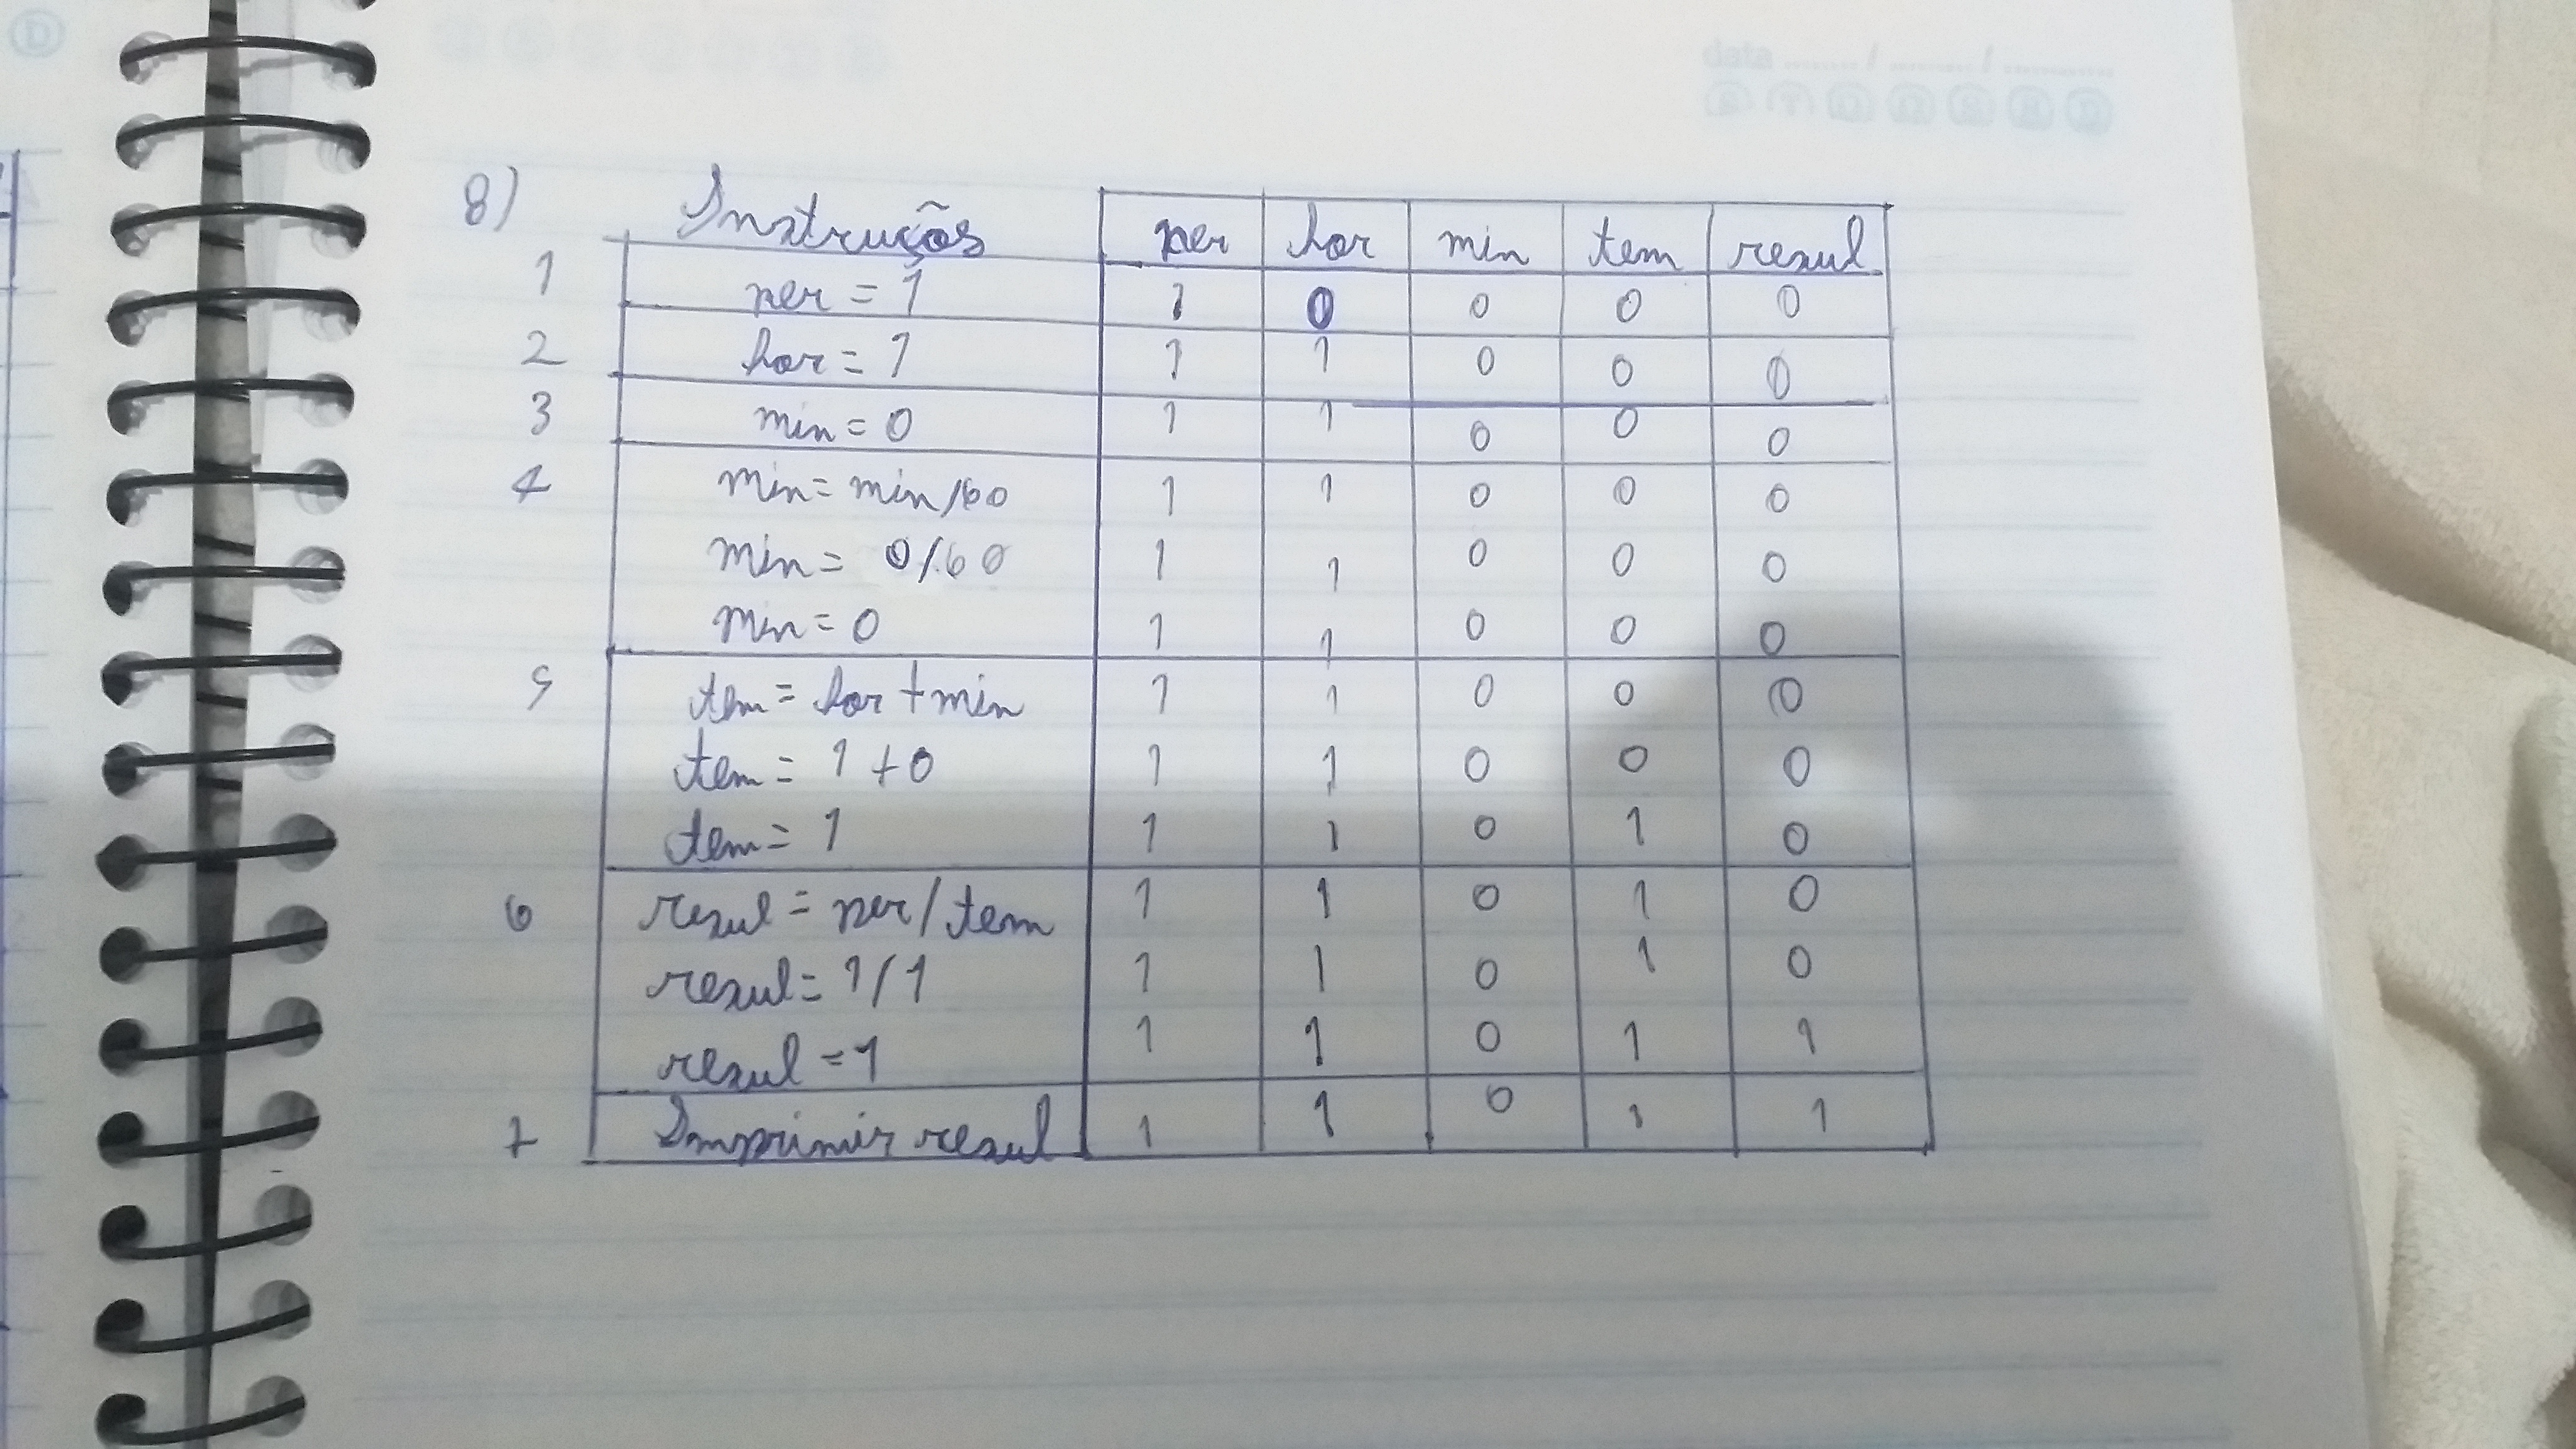 data ....... / ....... / ..........
8) Instruções per hor min tem resul
1 per = 1 1 0 0 0 0
2 hor = 1 1 1 0 0 0
3 min = 0 1 1 0 0 0
4 min = min/60 1 1 0 0 0
min = 0/60 1 1 0 0 0
min = 0 1 1 0 0 0
5 tem = hor + min 1 1 0 0 0
tem = 1 + 0 1 1 0 0 0
tem = 1 1 1 0 1 0
6 resul = per/tem 1 1 0 1 0
resul = 1/1 1 1 0 1 0
resul = 1 1 1 0 1 1
7 Imprimir resul 1 1 0 1 1